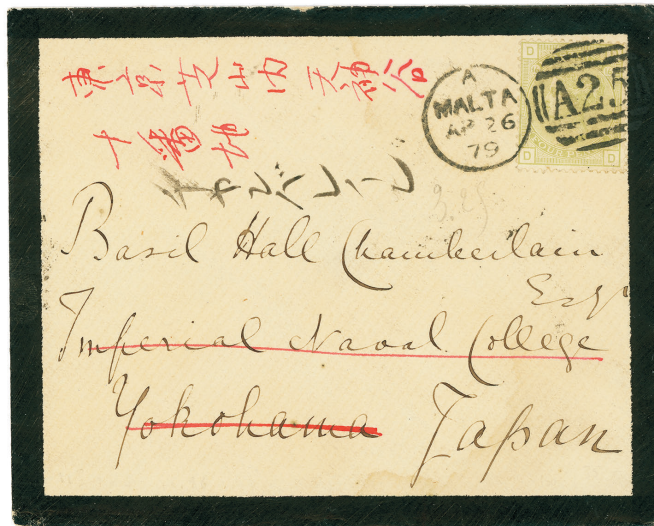 東京芝山内天神谷
十番地
A
MALTA
AP 26
79
A25
D
D D
Basil Hall Chamberlain
Esqr
Imperial Naval College
Yokohama Japan